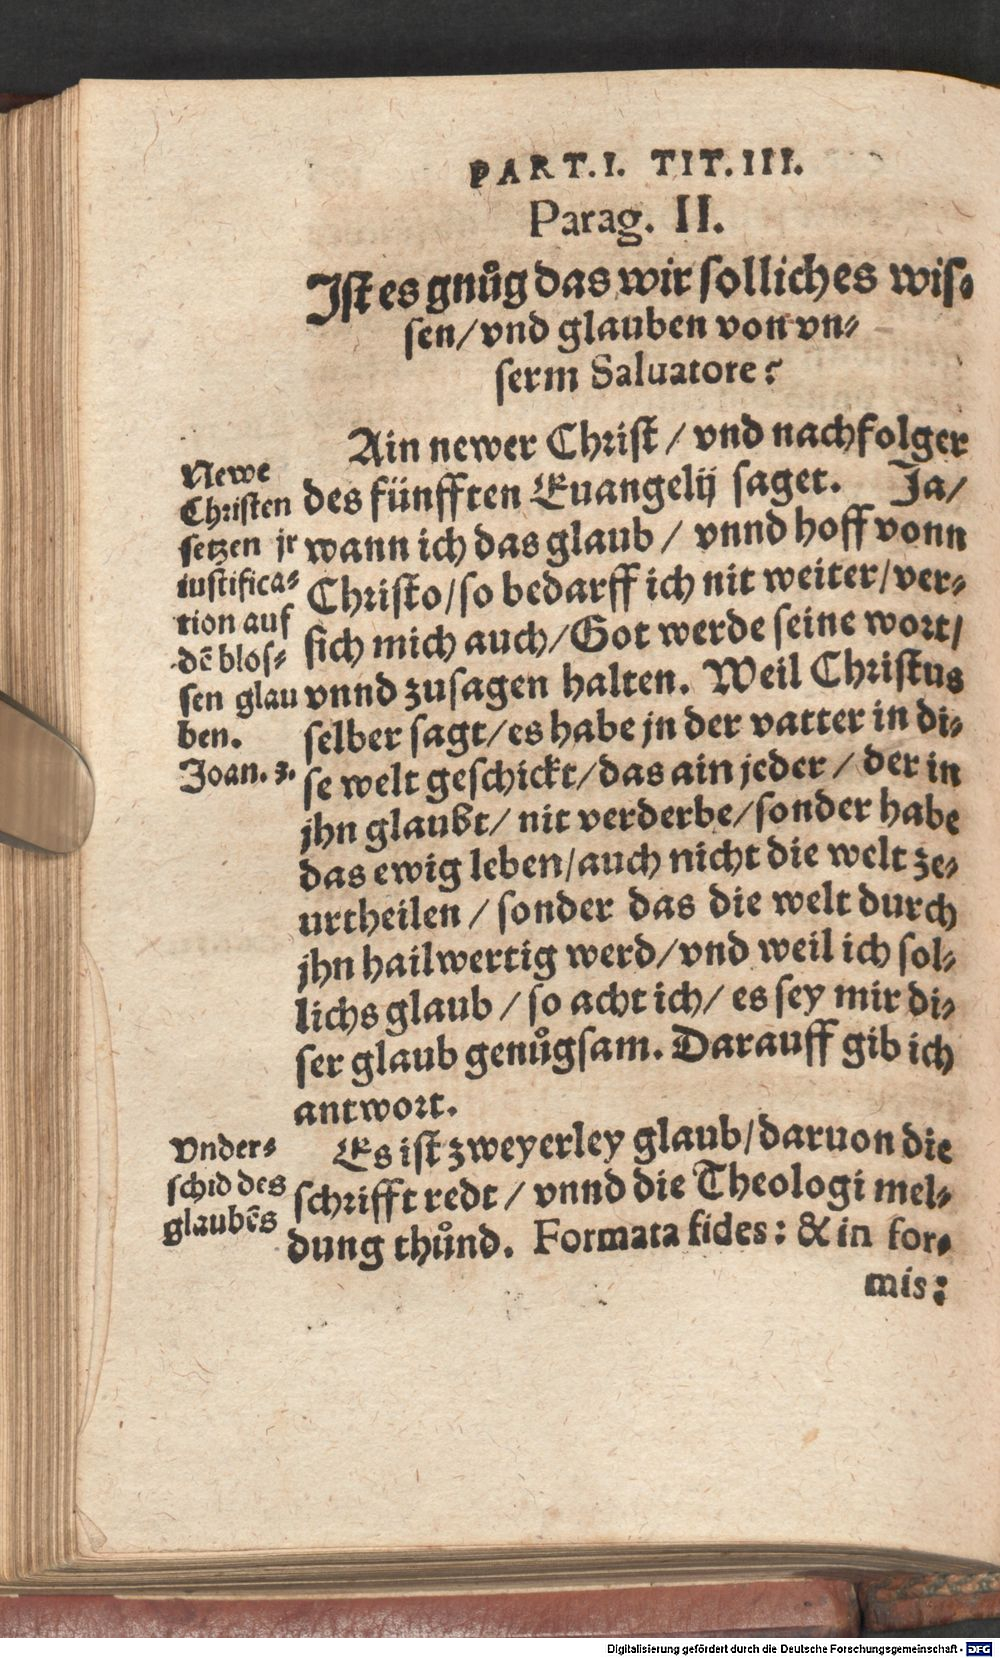 PART. I. TIT. III.
Parag. II.
Ist es gnůg das wir solliches wis-
sen/ vnd glauben von vn-
serm Saluatore?
Ain newer Christ / vnd nachfolger
des fünfften Euangelij saget. Ja/
wann ich das glaub / vnnd hoff vonn
Christo/ so bedarff ich nit weiter/ ver-
sich mich auch/ Got werde seine wort/
vnnd zusagen halten. Weil Christus
selber sagt/ es habe jn der vatter in di-
se welt geschickt/ das ain jeder / der in
jhn glaubt/ nit verderbe/ sonder habe
das ewig leben/ auch nicht die welt ze-
urtheilen / sonder das die welt durch
jhn hailwertig werd/ vnd weil ich sol-
lichs glaub / so acht ich/ es sey mir di-
ser glaub genůgsam. Darauff gib ich
antwort.
Es ist zweyerley glaub/ daruon die
schrifft redt / vnnd die Theologi mel-
dung thůnd. Formata fides: & in for-
mis:
Newe
Christen
setzen jr
iustifica-
tion auf
dē blos-
sen glau
ben.
Joan. 3.
Vnder-
schid des
glaubēs
Digitalisierung gefördert durch die Deutsche Forschungsgemeinschaft - DFG